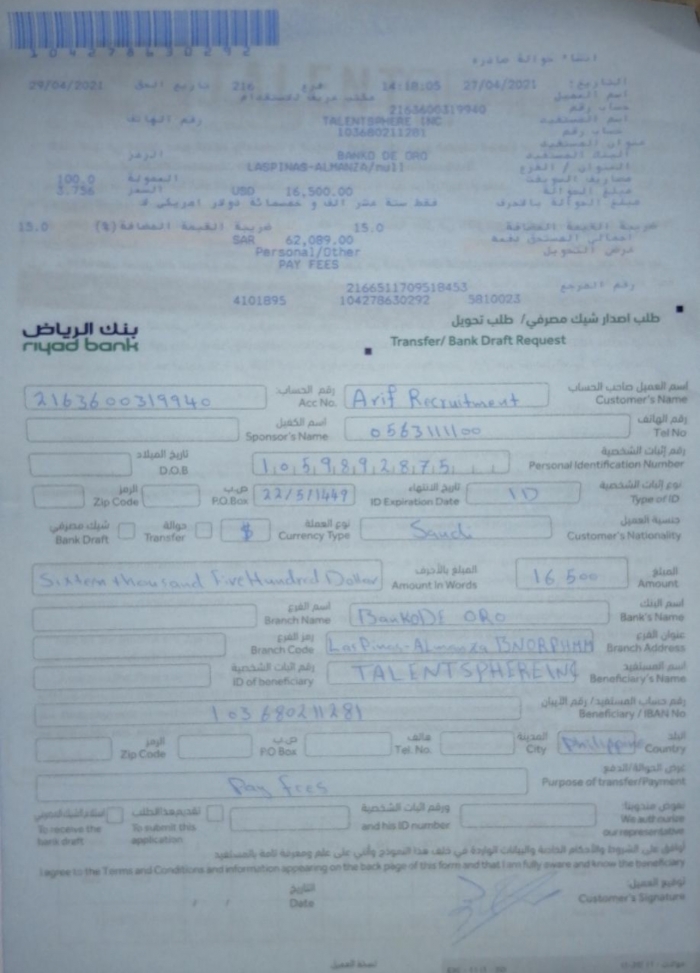 10427863 0292
انشاء حوالة صادره
التاريخ: 27/04/2021 14:18:05 فرع 216 تاريخ الحق 29/04/2021
اسم العميل مكتب عريف للاستقدام
حساب رقم 2163600319940
اسم المستفيد TALENTSPHERE INC رقم الهاتف
حساب رقم 103680211281
عنوان المستفيد
البنك المستفيد BANKO DE ORO الرمز
العنوان / الفرع LASPINAS-ALMANZA/null
مصاريف السويفت العمولة 100.0
مبلغ الحوالة 16,500.00 USD السعر 3.756
مبلغ الحوالة بالاحرف فقط ستة عشر الف و خمسمائة دولار امريكي
ضريبة القيمة المضافة 15.0 ضريبة القيمة المضافة(%) 15.0
اجمالي المستحق دفعه 62,089.00 SAR
غرض التحويل Personal/Other
PAY FEES
رقم المرجع 2166511709518453
4101895 104278630292 5810023
بنك الرياض
riyad bank
طلب اصدار شيك مصرفي/ طلب تحويل
Transfer/ Bank Draft Request
اسم العميل صاحب الحساب
Customer's Name Arif Recruitment
رقم الحساب:
Acc No. 2163600319940
رقم الهاتف
Tel No 0563111100
اسم الكفيل
Sponsor's Name
رقم إثبات الشخصية
Personal Identification Number 1,0,5,9,8,9,2,8,7,5
تاريخ الميلاد
D.O.B
نوع إثبات الشخصية
Type of ID ID
تاريخ الانتهاء
ID Expiration Date 22/5/1449
ص.ب
P.O.Box
الرمز
Zip Code
جنسية العميل
Customer's Nationality Saudi
نوع العملة
Currency Type $
حوالة
Transfer
شيك مصرفي
Bank Draft
المبلغ
Amount 16 500
المبلغ بالأحرف
Amount in Words Sixteen thousand Five Hundred Dollar
اسم البنك
Bank's Name BankoDE ORO
اسم الفرع
Branch Name
عنوان الفرع
Branch Address LasPinas-Almanza BNORPHMM
رمز الفرع
Branch Code
اسم المستفيد
Beneficiary's Name TALENTSPHEREINC
رقم اثبات الشخصية
ID of beneficiary
رقم حساب المستفيد/ رقم الآيبان
Beneficiary / IBAN No 103680211281
البلد
Country Philippine
المدينة
City
هاتف
Tel. No.
ص.ب
P.O Box
الرمز
Zip Code
غرض الحوالة/الدفع
Purpose of transfer/Payment Pay Fees
نفوض مندوبنا
We authorize our representative
ورقم اثبات الشخصية
and his ID number
لتقديم هذا الطلب
To submit this application
استلام الشيك المصرفي
To receive the bank draft
أوافق على الشروط والأحكام الخاصة والبيانات الواردة في خلف هذا النموذج وأنني على علم ومعرفة تامة بالمستفيد
I agree to the Terms and Conditions and information appearing on the back page of this form and that I am fully aware and know the beneficiary
توقيع العميل:
Customer's Signature
التاريخ
Date / /
نسخة العميل